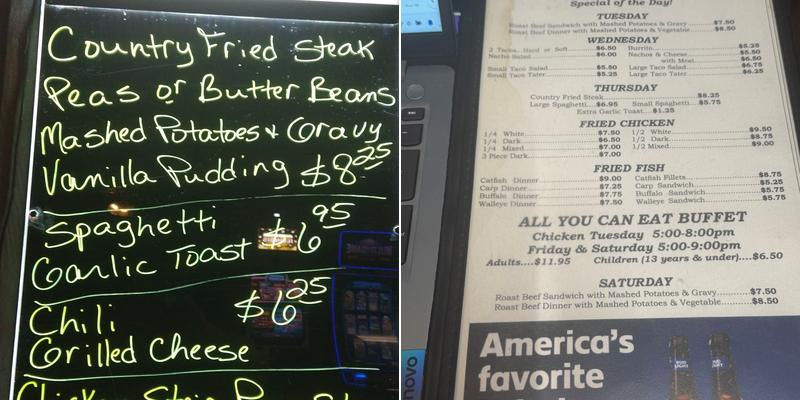 Country Fried Steak
Peas or Butter Beans
Mashed Potatoes + Gravy
Vanilla Pudding $8.25
Spaghetti
Garlic Toast $6.95
Chili $6.25
Grilled Cheese
Special of the Day!
TUESDAY
Roast Beef Sandwich with Mashed Potatoes & Gravy $7.50
Roast Beef Dinner with Mashed Potatoes & Vegetable $8.50
WEDNESDAY
2 Tacos, Hard or Soft $6.50 Burrito $5.25
Nacho Salad $6.00 Nachos & Cheese $5.50
with Meat $6.50
Small Taco Salad $5.50 Large Taco Salad $6.75
Small Taco Tater $5.25 Large Taco Tater $6.25
THURSDAY
Country Fried Steak $8.25
Large Spaghetti $6.95 Small Spaghetti $5.75
Extra Garlic Toast $1.25
FRIED CHICKEN
1/4 White $7.50 1/2 White $9.50
1/4 Dark $6.50 1/2 Dark $8.75
1/4 Mixed $7.00 1/2 Mixed $9.00
3 Piece Dark $7.00
FRIED FISH
Catfish Dinner $9.00 Catfish Fillets $8.75
Carp Dinner $7.25 Carp Sandwich $5.25
Buffalo Dinner $7.75 Buffalo Sandwich $5.75
Walleye Dinner $7.50 Walleye Sandwich $5.75
ALL YOU CAN EAT BUFFET
Chicken Tuesday 5:00-8:00pm
Friday & Saturday 5:00-9:00pm
Adults....$11.95 Children (13 years & under)....$6.50
SATURDAY
Roast Beef Sandwich with Mashed Potatoes & Gravy $7.50
Roast Beef Dinner with Mashed Potatoes & Vegetable $8.50
America's
favorite